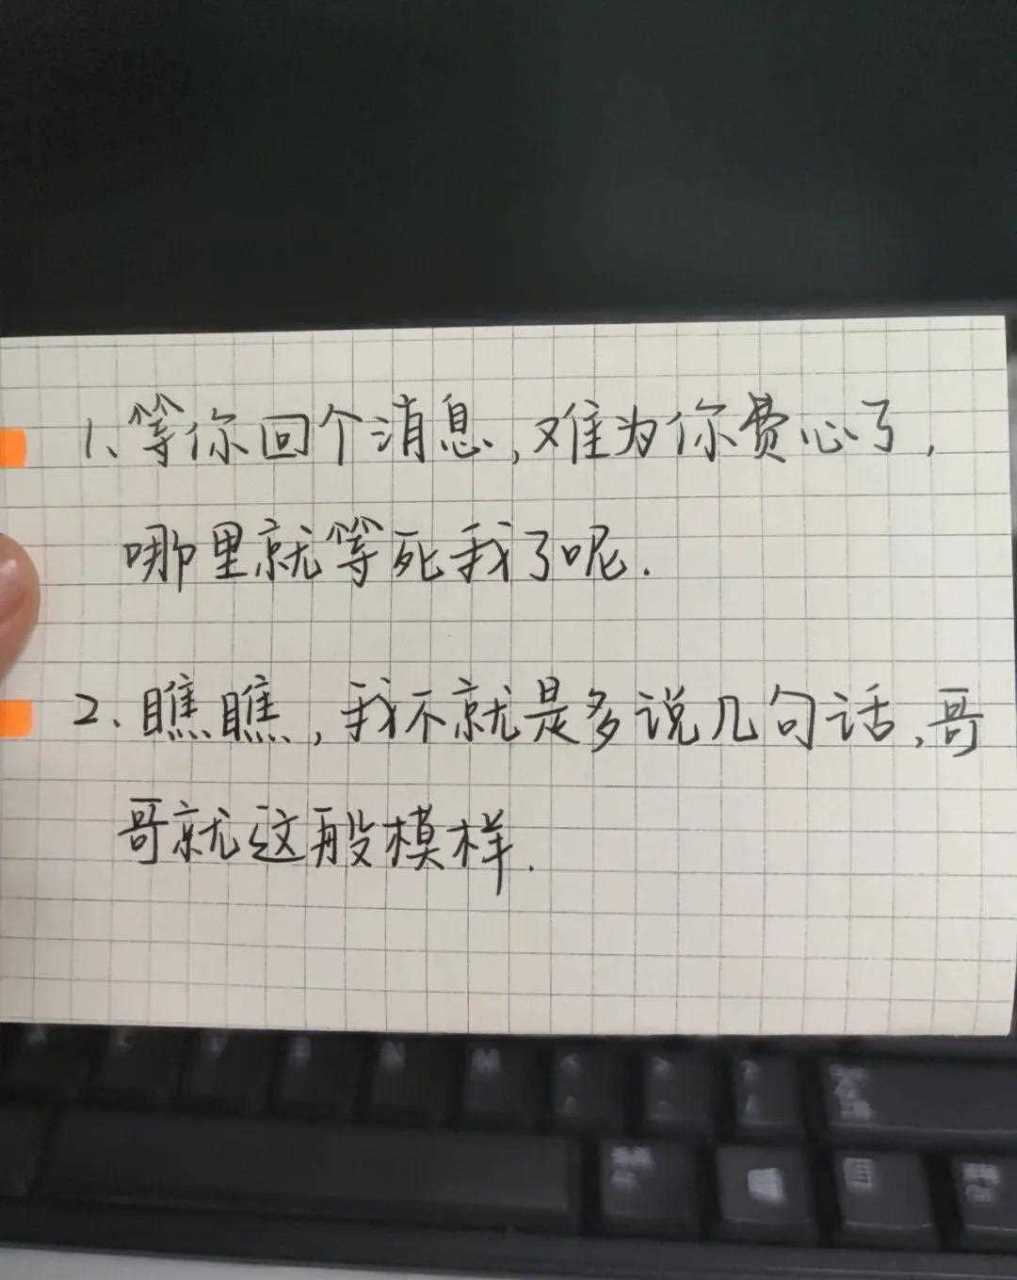 1、等你回个消息,难为你费心了,
哪里就等死我了呢.
2、瞧瞧,我不就是多说几句话,哥
哥就这般模样.
C V B N M